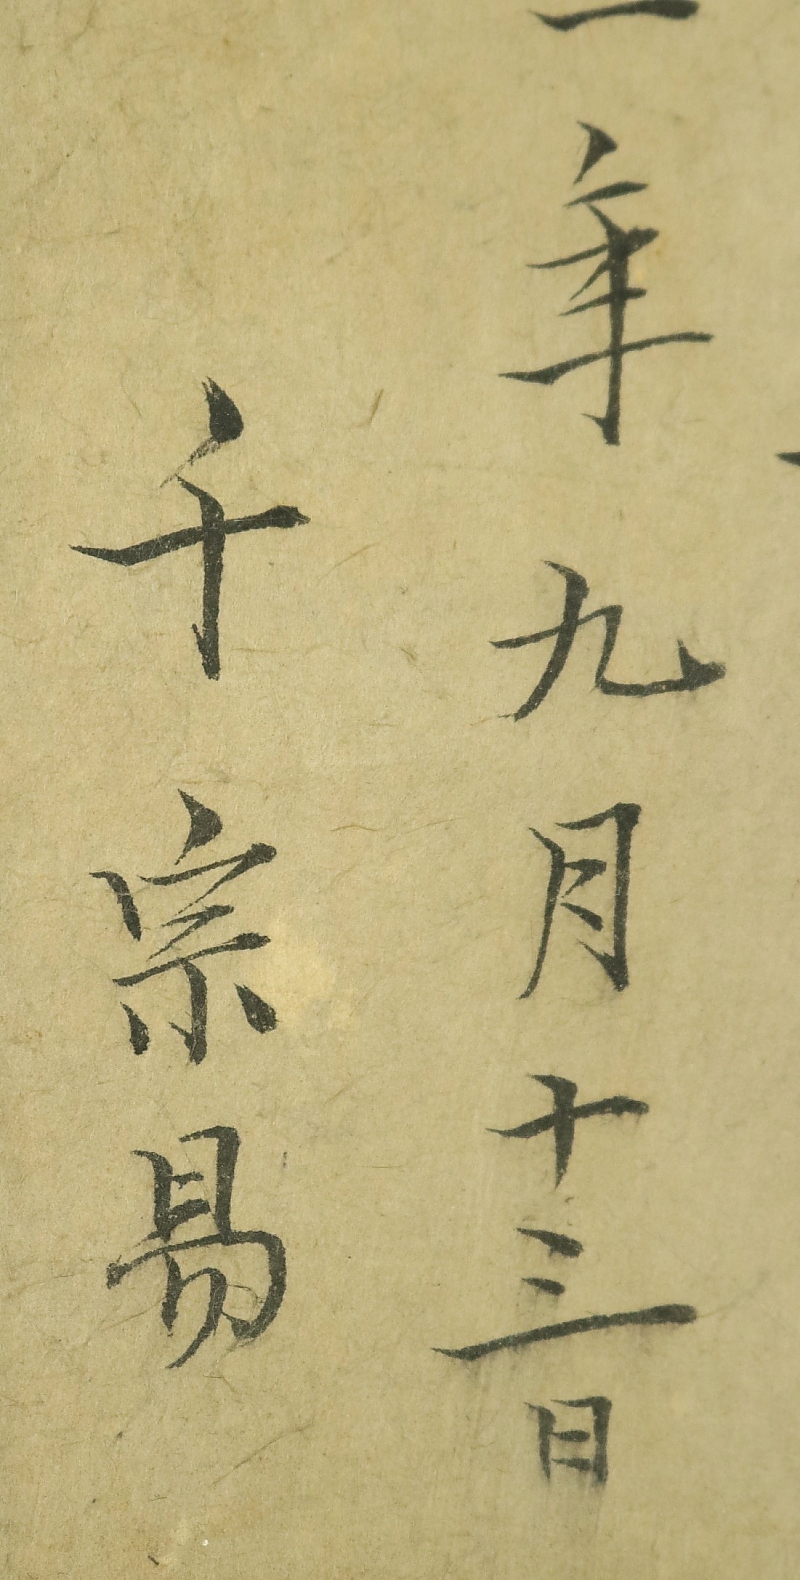 一年九月十三日
千宗易